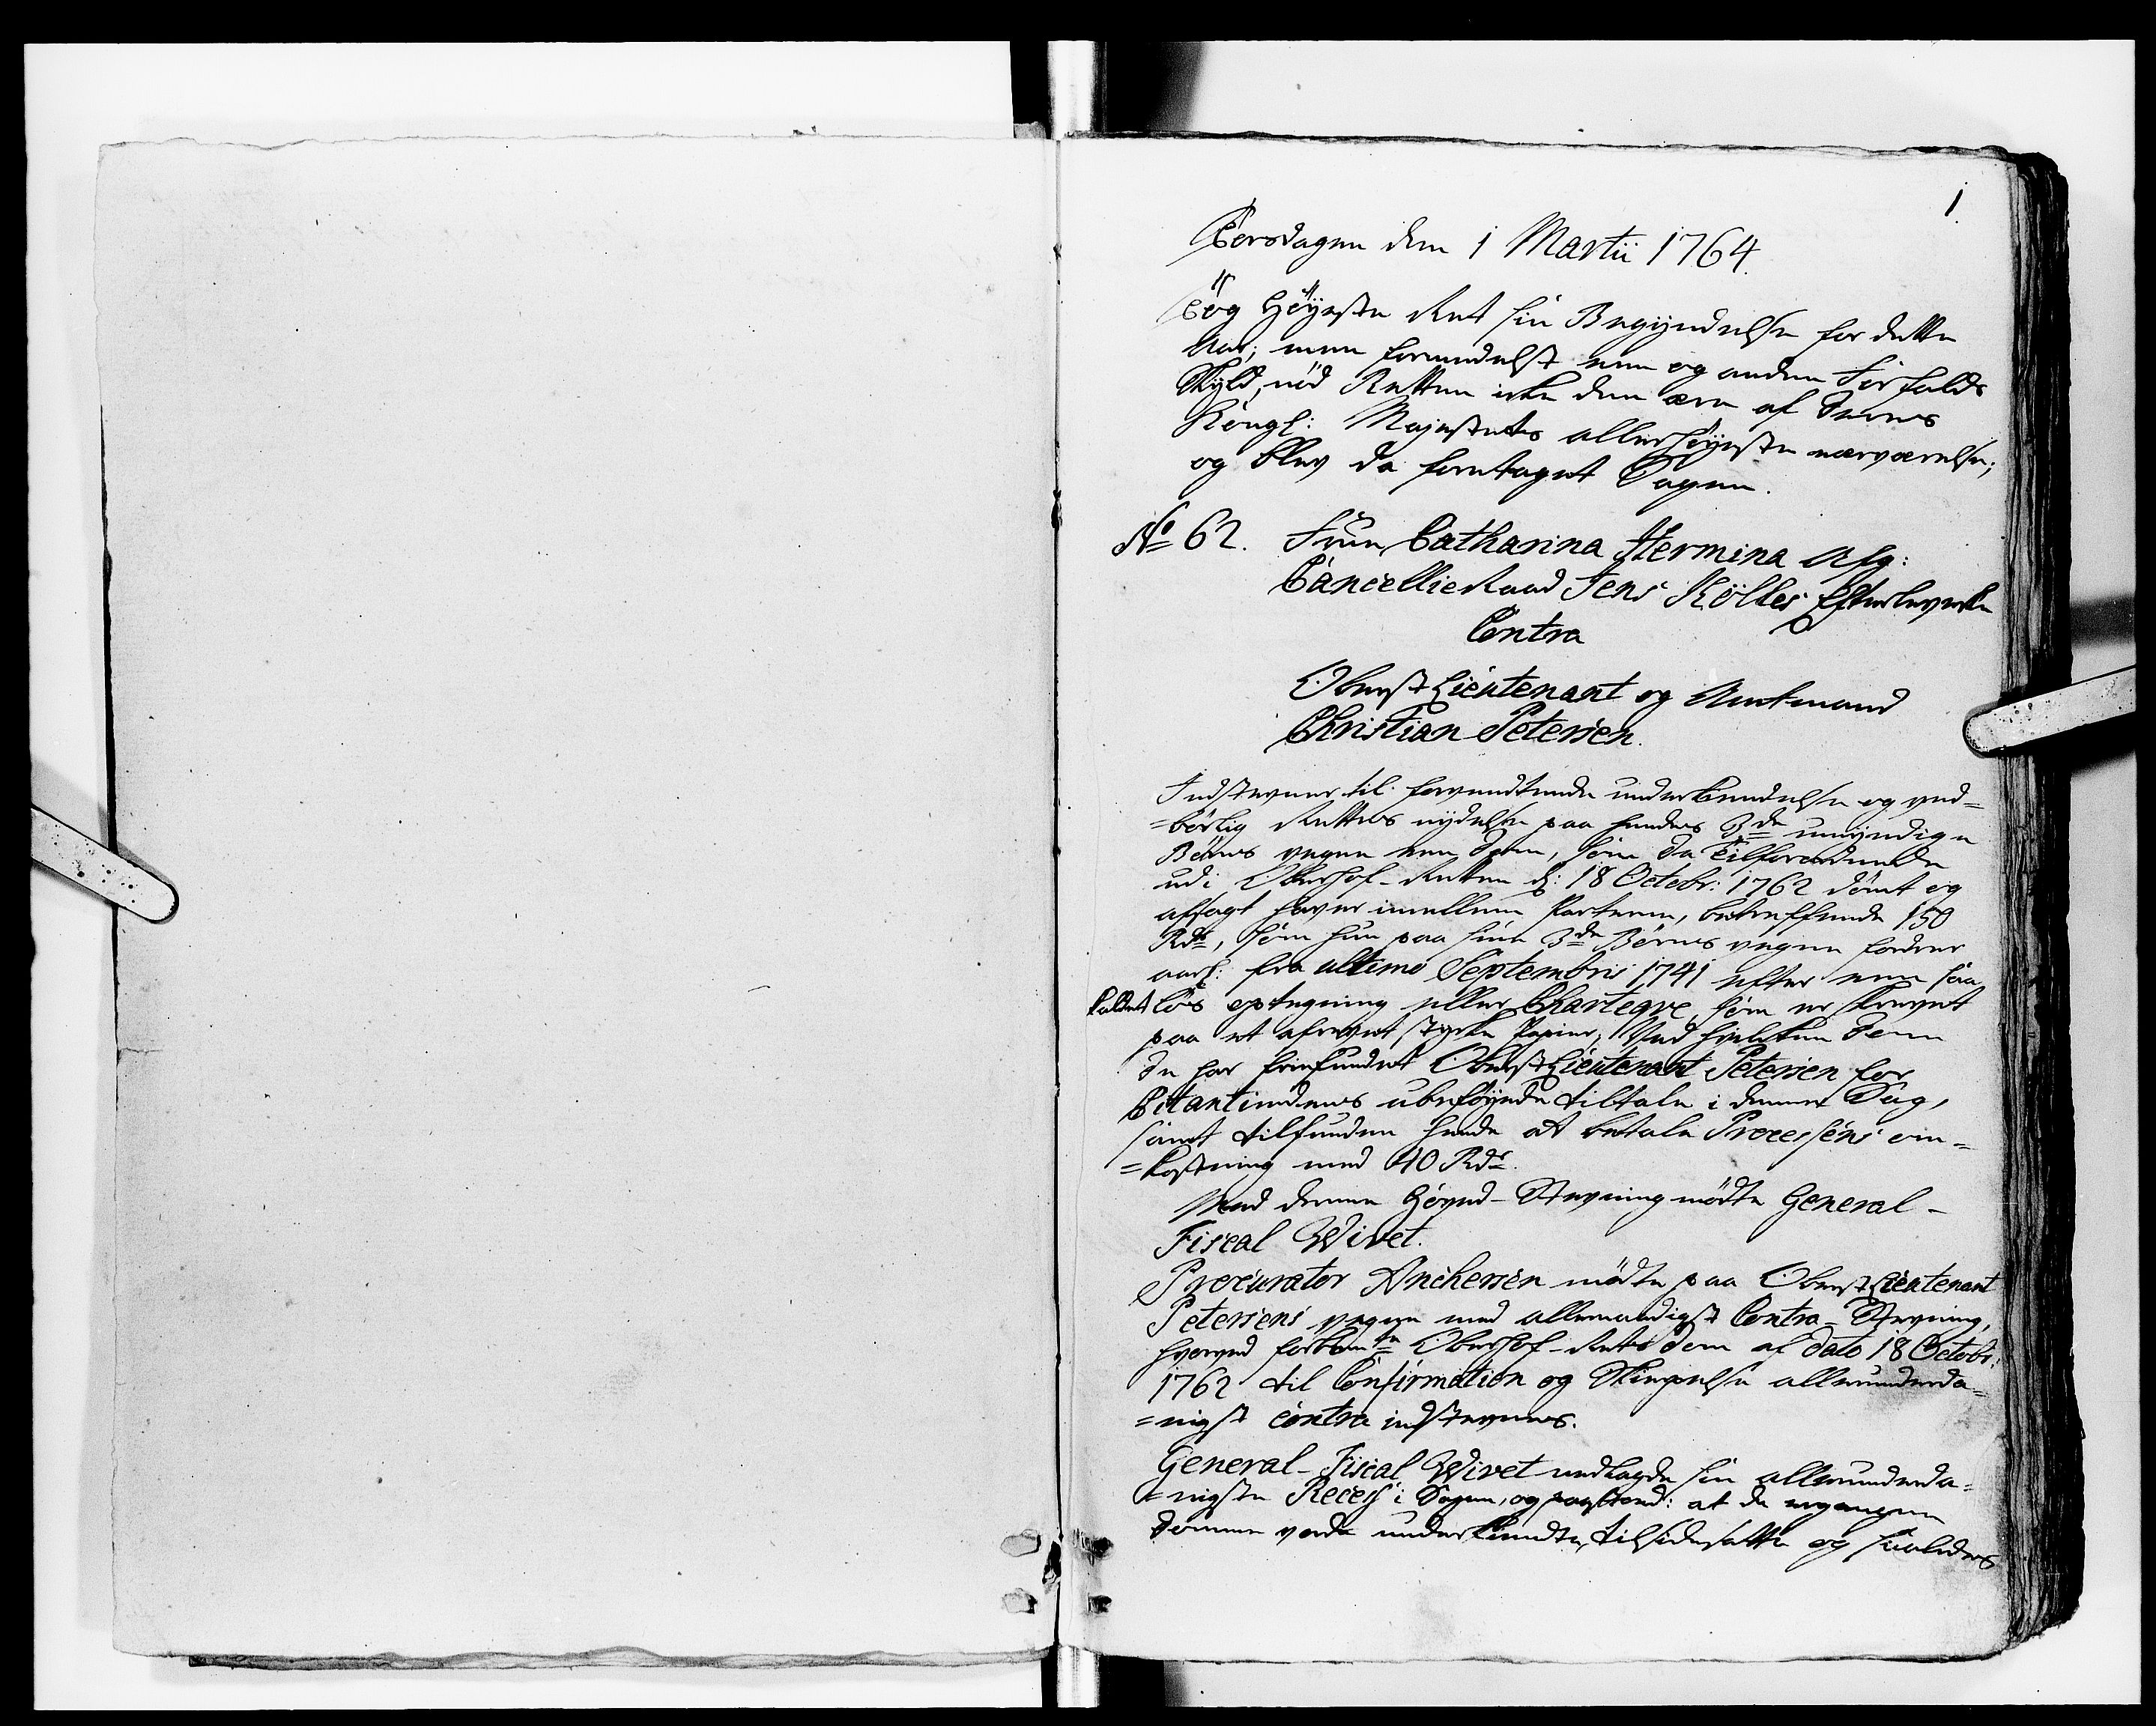 1
Torsdagen den 1 Martii 1764.
Tog Høyeste Ret sin Begyndelse for dette
Aar; men formedelst een og anden Forfalds
Skyld, nød Retten icke den ære af Deres
Kongl: Majestæts allerhøyeste nærværelse;
og blev da foretaget Sagen.
No 62. Frue Catharina Hermina Afg:
Cancellie Raad Jens Kølles Efterleverske
Contra
Oberst Lieutenant og Amtmand
Christian Petersen.
Indstevner til forventende underkiendelse og ved=
=børlig Rettes nydelse paa hendes 3de umyndige
Børns vegne een Dom, som de Tilforordnede
udi Oberhof-Retten d: 18 Octobr: 1762 dømt og
afsagt haver imellem Parterne, betreffende 150
Rdr, som hun paa sine 3de Børns vegne fordrer
aarl: fra ultimo Septembris 1741 efter een saa
kaldet løs optegning eller Charteqve, som er skrevet
paa et afrevet stycke Papiir, Ved hvilken Dom
de har friefundet Oberst Lieutenant Petersen for
Citantindens ubeføyede tiltale i denne Sag,
samt tilfunden hende at betale Processens om=
=kostning med 40 Rdr.
Med denne Hoved-Stevning mødte General-
Fiscal Wivet.
Procurator Anchersen mødte paa Oberst Lieutenant
Petersens vegne med allernaadigst Contra-Stevning,
hvorved forbemte Oberhof-Rets Dom af dato 18 Octobr:
1762 til Confirmation og Skiempelse allerunderda=
=nigst contra indstevnes.
General-Fiscal Wivet nedlagde sin allerunderda=
=nigste Recess i Sagen, og paastod: at de ergangne
Domme vorde underkiendte, tilsidesatte og saaledes